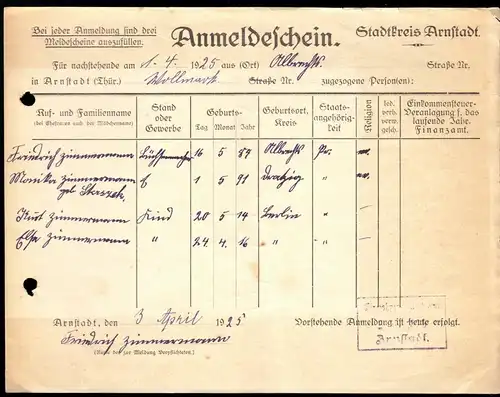 Bei jeder Anmeldung sind drei Meldescheine auszufüllen.
Anmeldeschein.
Stadtkreis Arnstadt.
Für nachstehende am 1. 4. 1925 aus (Ort) Albrechts Straße Nr.
in Arnstadt (Thür.) Wollmarkt Straße Nr. zugezogene Person(en):
Ruf- und Familienname (bei Ehefrauen auch der Mädchenname) Stand oder Gewerbe Geburts- Tag Monat Jahr Geburtsort, Kreis Staats-angehörig-keit Religion led. verh. verw. gesch. Einkommensteuer-Veranlagung f. das laufende Jahr. Finanzamt.
Friedrich Zimmermann Büchsenmacher 16 5 89 Albrechts Pr. ev.
Monika Zimmermann 1 5 91
geb.
Kurt Zimmermann Kind 20 5 14 Berlin "
Else Zimmermann " 24 4 16 " "
Arnstadt, den 3 April 1925 Vorstehende Anmeldung ist heute erfolgt.
Friedrich Zimmermann
(Name des zur Meldung Verpflichteten.)
Arnstadt.